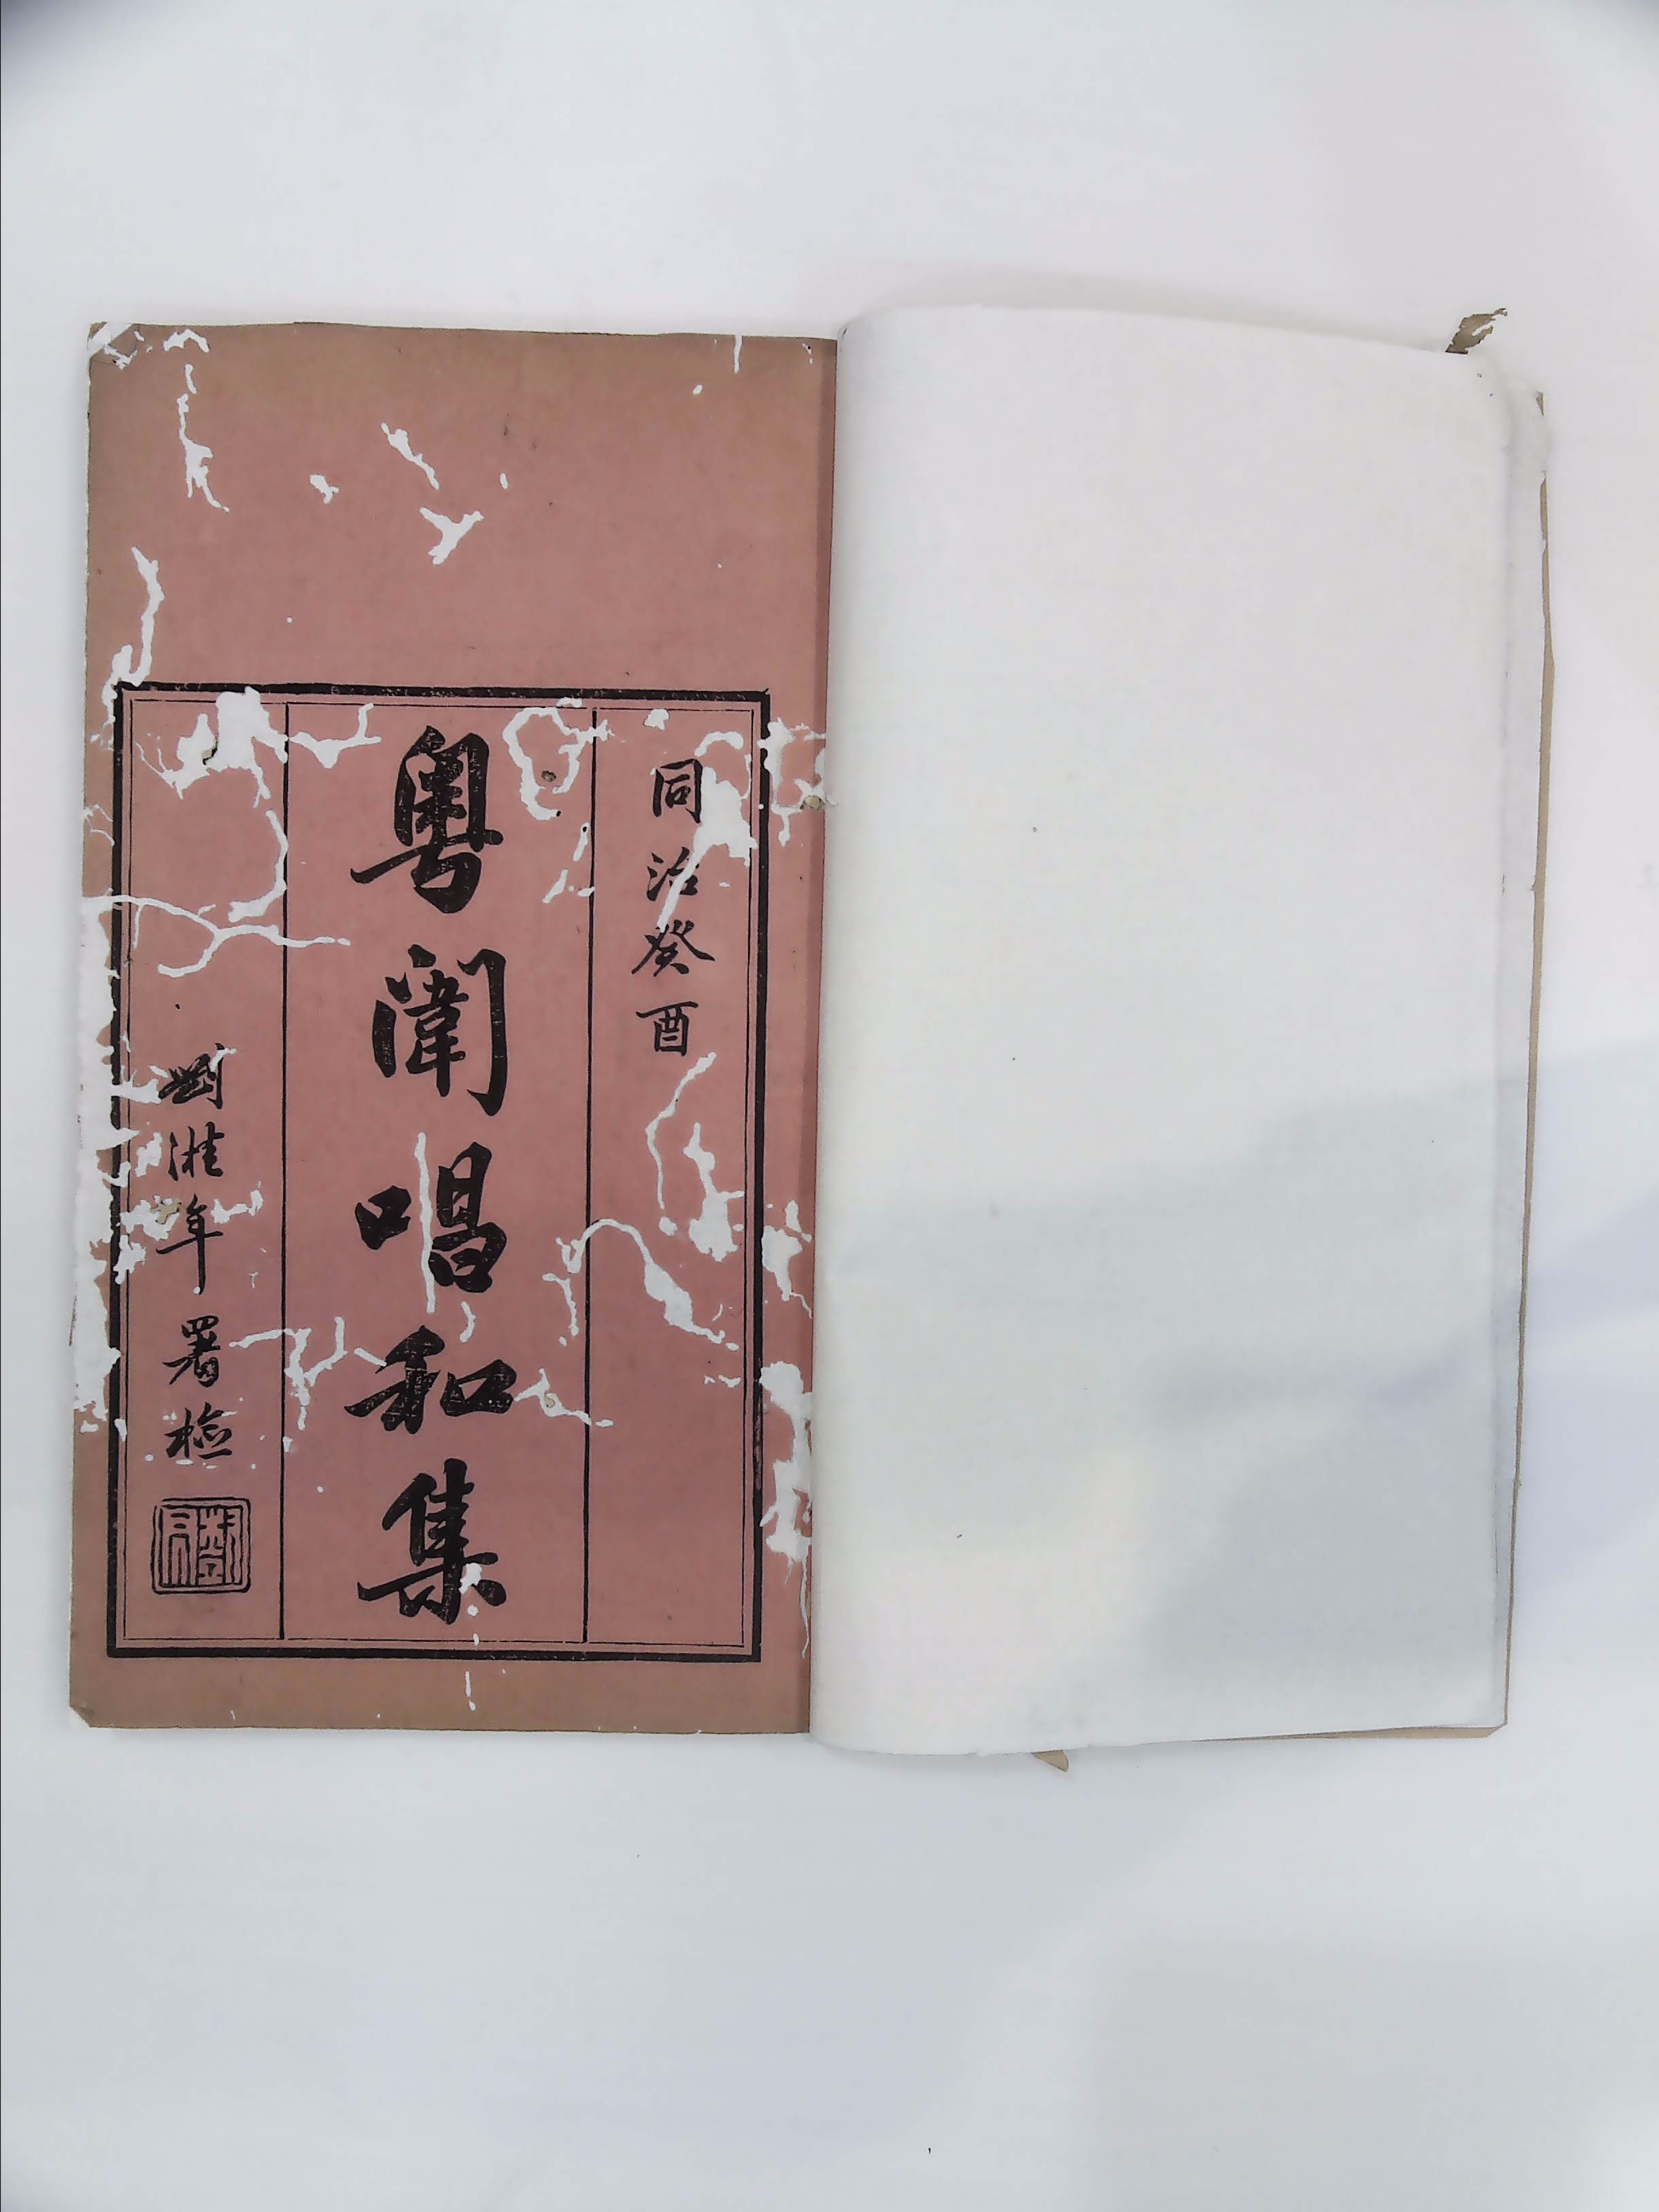 同治癸酉
粵闈唱和集
劉溎年署檢